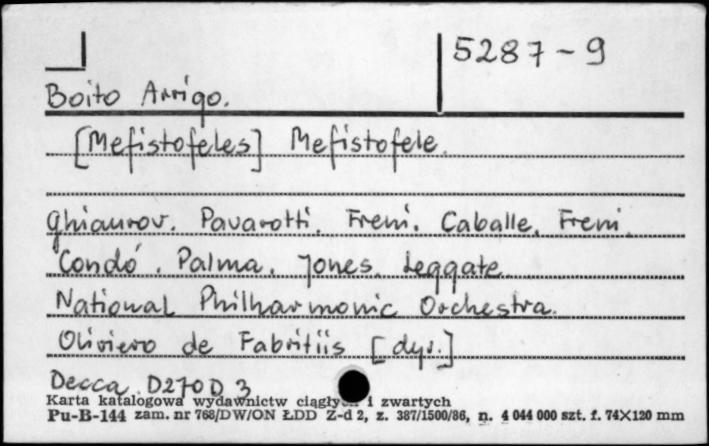 5287-9
Boito Arrigo.
[Mefistofeles] Mefistofele.
Ghiaurov. Pavarotti. Freni. Caballe. Freni.
Condó. Palma. Jones. Leggate.
National Philharmonic Orchestra.
Oliviero de Fabritiis [dyr.]
Decca D270D 3
Karta katalogowa wydawnictw ciągłych i zwartych
Pu-B-144 zam. nr 768/DW/ON ŁDD Z-d 2, z. 387/1500/86, n. 4 044 000 szt. f. 74X120 mm